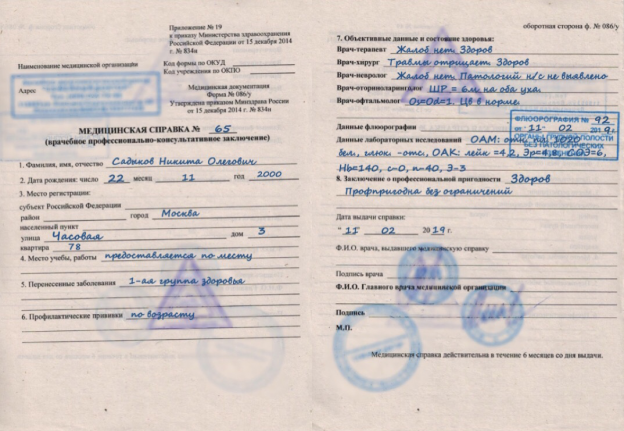 Приложение № 19
к приказу Министерства здравоохранения
Российской Федерации от 15 декабря 2014
г. № 834н
Наименование медицинской организации
Код формы по ОКУД
Код учреждения по ОКПО
Адрес
Медицинская документация
Форма № 086/у
Утверждена приказом Минздрава России
от 15 декабря 2014 г. № 834н
МЕДИЦИНСКАЯ СПРАВКА № 65
(врачебное профессионально-консультативное заключение)
1. Фамилия, имя, отчество Садыков Никита Олегович
2. Дата рождения: число 22 месяц 11 год 2000
3. Место регистрации:
субъект Российской Федерации
район город Москва
населенный пункт
улица Часовая дом 3
квартира 78
4. Место учебы, работы предоставляется по месту
5. Перенесенные заболевания 1-ая группа здоровья
6. Профилактические прививки по возрасту
оборотная сторона ф. № 086/у
7. Объективные данные и состояние здоровья:
Врач-терапевт Жалоб нет. Здоров
Врач-хирург Травмы отрицает. Здоров
Врач-невролог Жалоб нет. Патологий н/с не выявлено
Врач-оториноларинголог ШР = 6м на оба уха.
Врач-офтальмолог Оу=Оd=1. Цв в норме.
ФЛЮОРОГРАФИЯ № 92
от 11 02 2019г.
Данные флюорографии
ОРГАНЫ ГР. ПОЛОСТИ
БЕЗ ПАТОЛОГИЧЕСКИХ
Данные лабораторных исследований ОАМ: отн. пл. 1020
бел, глюк -отс, ОАК: лейк =4,2, Эр=4,8, СОЭ=6,
Hb=140, с-0, п-40, Э-3
8. Заключение о профессиональной пригодности Здоров
Профпригодна без ограничений
Дата выдачи справки:
" 11 02 2019 г.
Ф.И.О. врача, выдавшего медицинскую справку
Подпись врача
Ф.И.О. Главного врача медицинской организации
Подпись
М.П.
Медицинская справка действительна в течение 6 месяцев со дня выдачи.